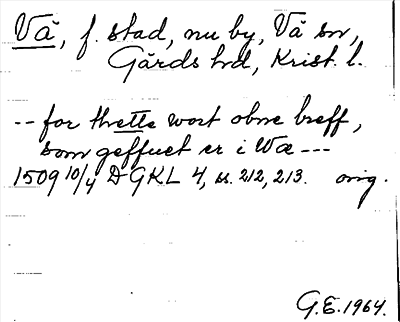 Vä, f. stad, nu by, Vä sn,
Gärds hd, Krist. l.
-- for thrette wort obne breff,
som geffuet er i Wæ ---
1509 10/4 DGKL 4, ss. 212, 213. orig.
G.E. 1964.